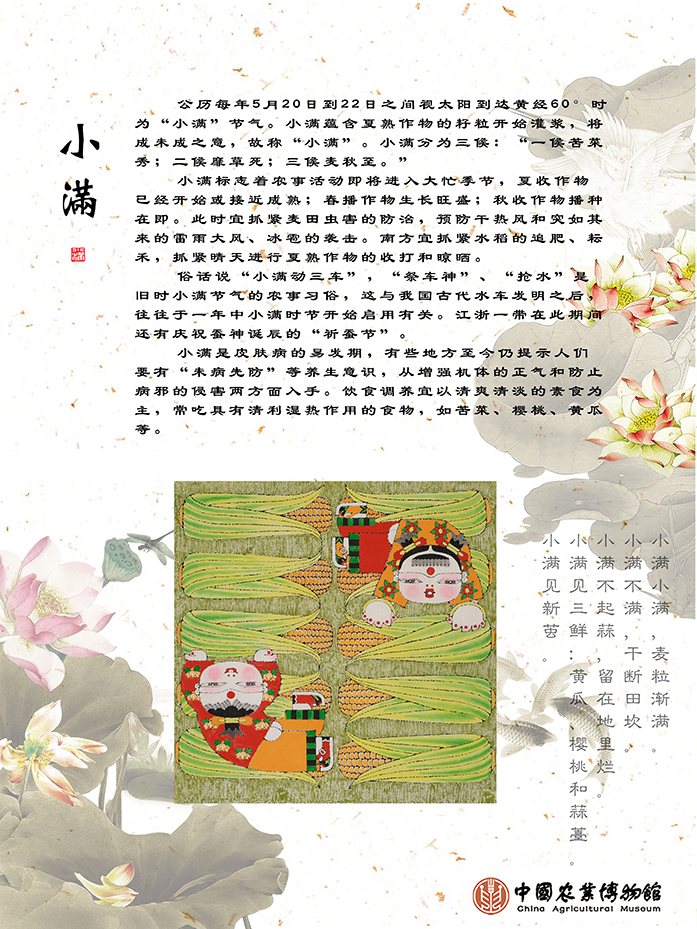 小满
公历每年5月20日到22日之间视太阳到达黄经60°时
为“小满”节气。小满蕴含夏熟作物的籽粒开始灌浆，将
成未成之意，故称“小满”。小满分为三候：“一候苦菜
秀；二候靡草死；三候麦秋至。”
小满标志着农事活动即将进入大忙季节，夏收作物
已经开始或接近成熟；春播作物生长旺盛；秋收作物播种
在即。此时宜抓紧麦田虫害的防治，预防干热风和突如其
来的雷雨大风、冰雹的袭击。南方宜抓紧水稻的追肥、耘
禾，抓紧晴天进行夏熟作物的收打和晾晒。
俗话说“小满动三车”，“祭车神”、“抢水”是
旧时小满节气的农事习俗，这与我国古代水车发明之后，
往往于一年中小满时节开始启用有关。江浙一带在此期间
还有庆祝蚕神诞辰的“祈蚕节”。
小满是皮肤病的易发期，有些地方至今仍提示人们
要有“未病先防”等养生意识，从增强机体的正气和防止
病邪的侵害两方面入手。饮食调养宜以清爽清淡的素食为
主，常吃具有清利湿热作用的食物，如苦菜、樱桃、黄瓜
等。
小满小满，麦粒渐满。
小满不满，干断田坎。
小满不起蒜，留在地里烂。
小满见三鲜：黄瓜、樱桃和蒜薹。
小满见新茧。
中國农業博物館
China Agricultural Museum